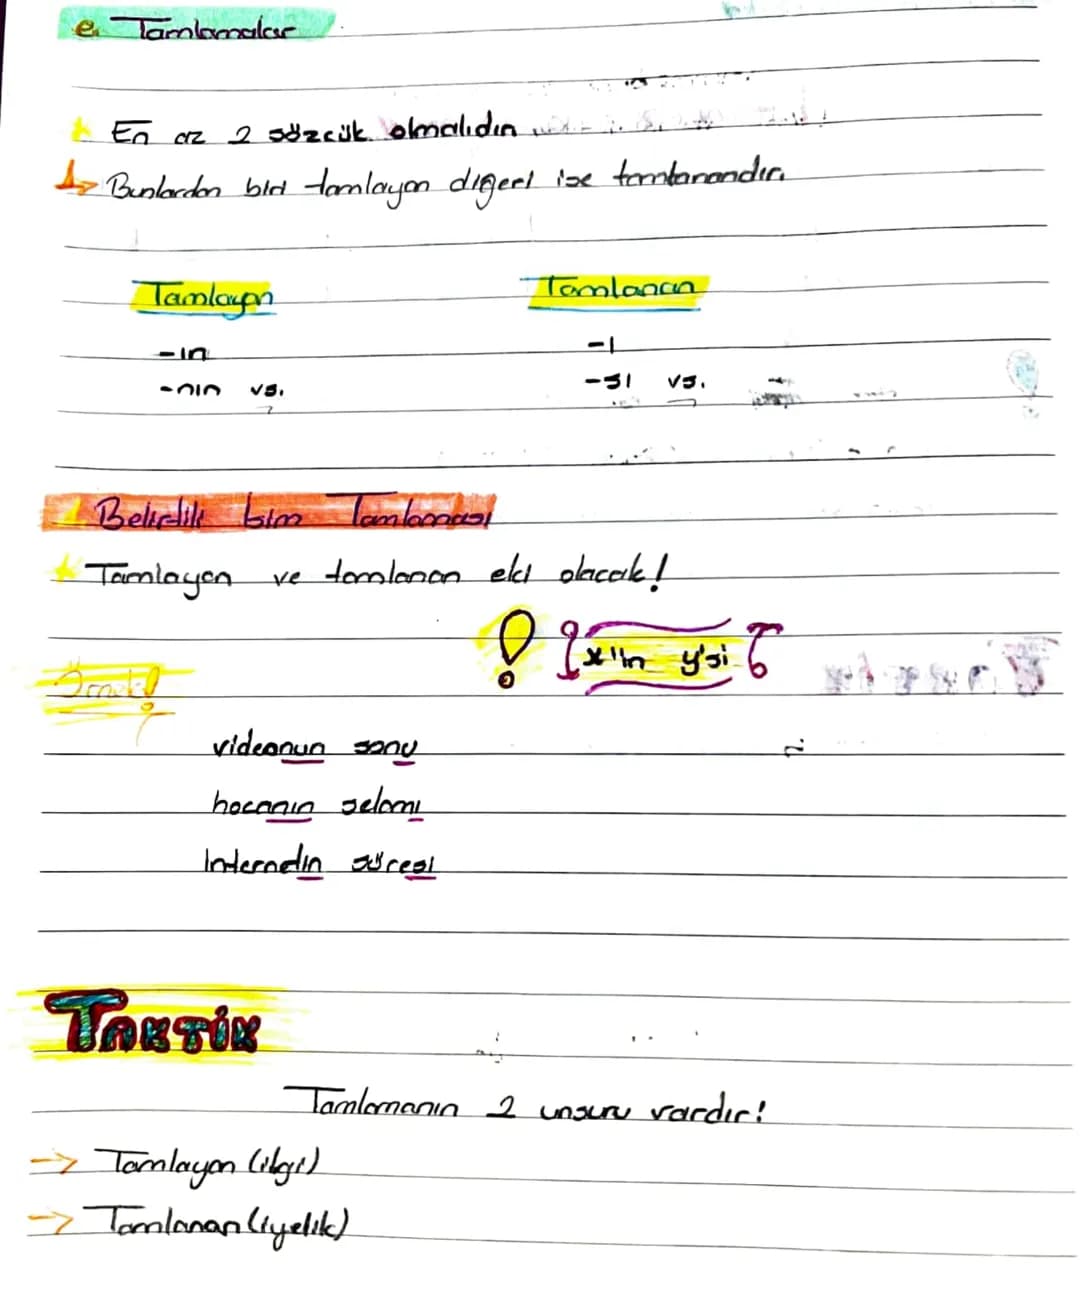 e. Tamlamalar
En az 2 sözcük olmalıdır
Bunlardan biri tamlayan diğeri ise tamlanandır.
Tamlayan Tamlanan
-ın -ı
-nın vs. -sı vs.
Belirtili İsim Tamlaması
Tamlayan ve tamlanan eki olacak!
! x'in y'si
Örnek!
videonun sonu
hocanın selamı
İnternetin süresi
TAKTİK
Tamlamanın 2 unsuru vardır!
→ Tamlayan (ilgi)
→ Tamlanan (iyelik)